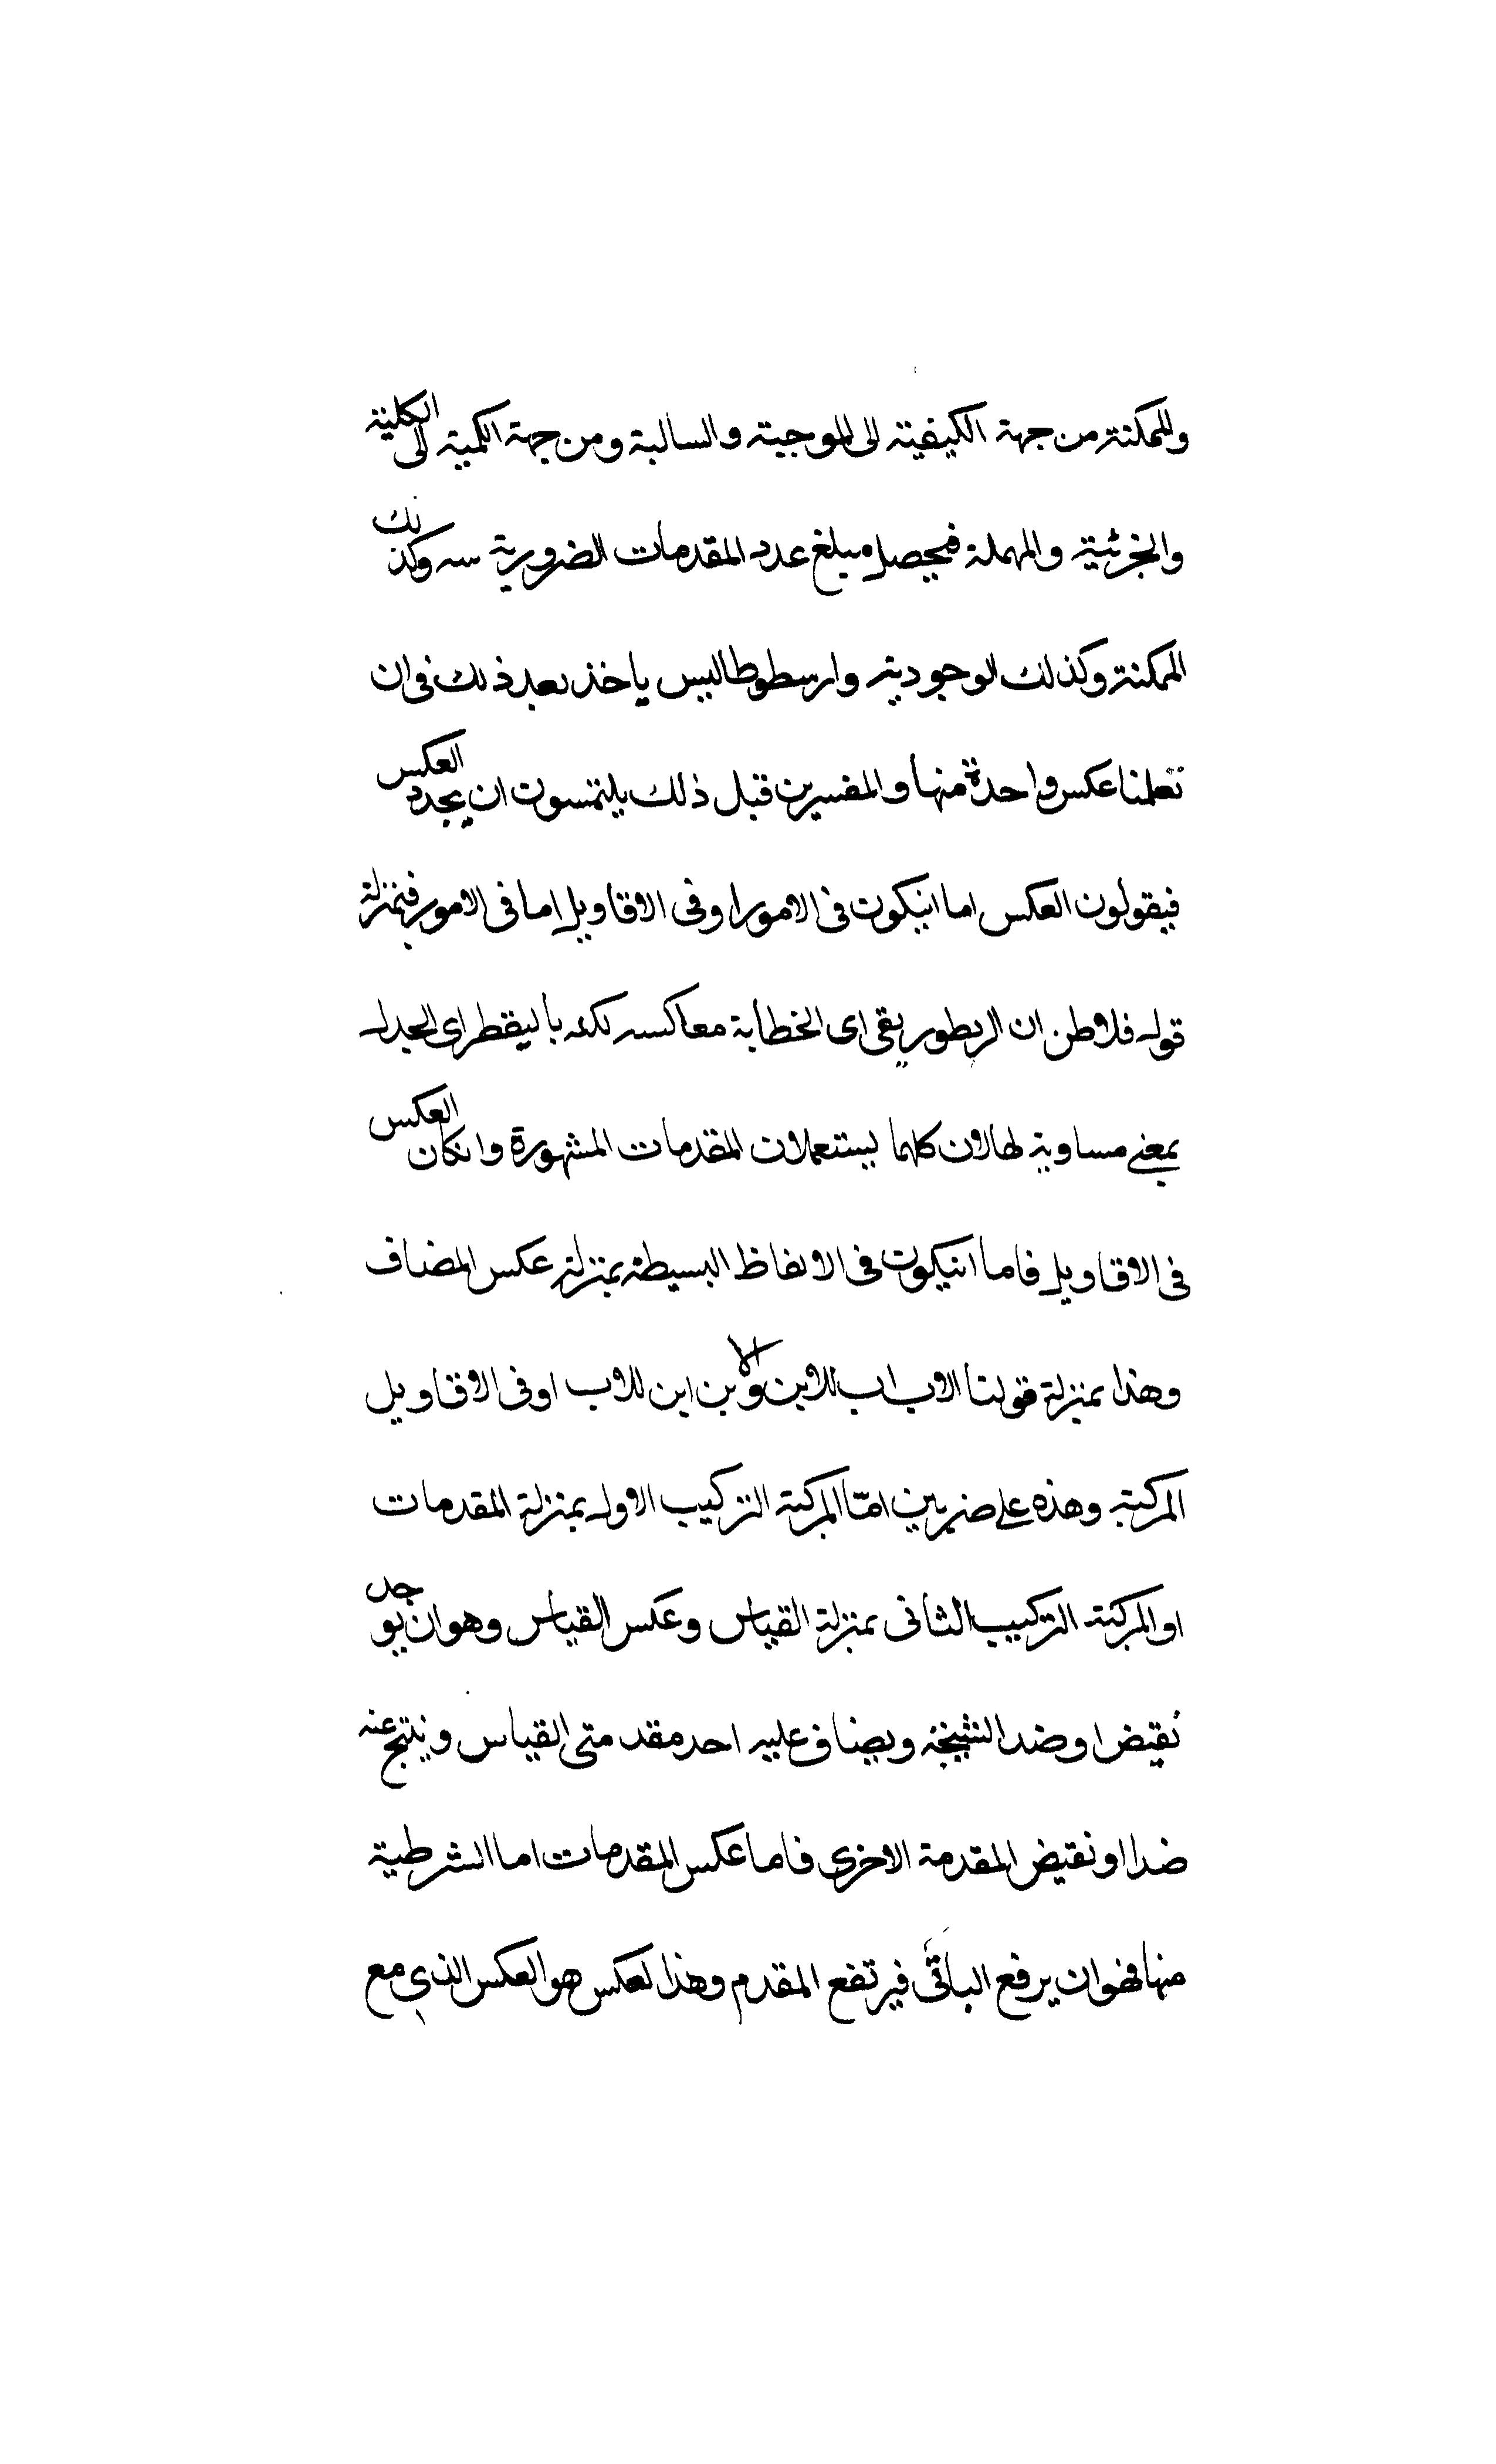 والممكنة من جهة الكيفية الى الموجبة والسالبة ومن جهة الكمية الى الكلية
والجزئية والمهملة فيحصل مبلغ عدد المقدمات الضرورية سه وكذلك
الممكنة وكذلك الوجودية وارسطوطاليس ياخذ بعد ذلك فى ان
تعلمنا عكس واحدة منها والمفسرين قبل ذلك يلتمسون ان يحدد العكس
فيقولون العكس اما ان يكون فى الامور او فى الاقاويل اما فى الامور فبمنزلة
قول فلاطن ان الريطوريقى اى الخطابة معاكسه لليا ليقطراى الجدل
بمعنى مساوية لها لان كلهما يستعملان المقدمات المشهورة وانكان العكس
فى الاقاويل فاما انيكون فى الالفاظ البسيطة بمنزلة عكس المضاف
وهذا بمنزلة قولنا الاب اب للابن والابن ابن للاب او فى الاقاويل
المركبة وهذه على ضربين امّا المركبة التركيب الاول بمنزلة المقدمات
او المركبة التركيب الثانى بمنزلة القياس وعكس القياس وهو ان يوجد
نقيض او ضد النتيجة ويضاف عليه احد مقدمتى القياس وينتج عنه
ضدا او نقيض المقدمة الاخرى فاما عكس المقدمات اما الشرطية
منها فهو ان يرفع الباقى فيرتفع المقدم وهذا لعكس هو العكس الذى مع